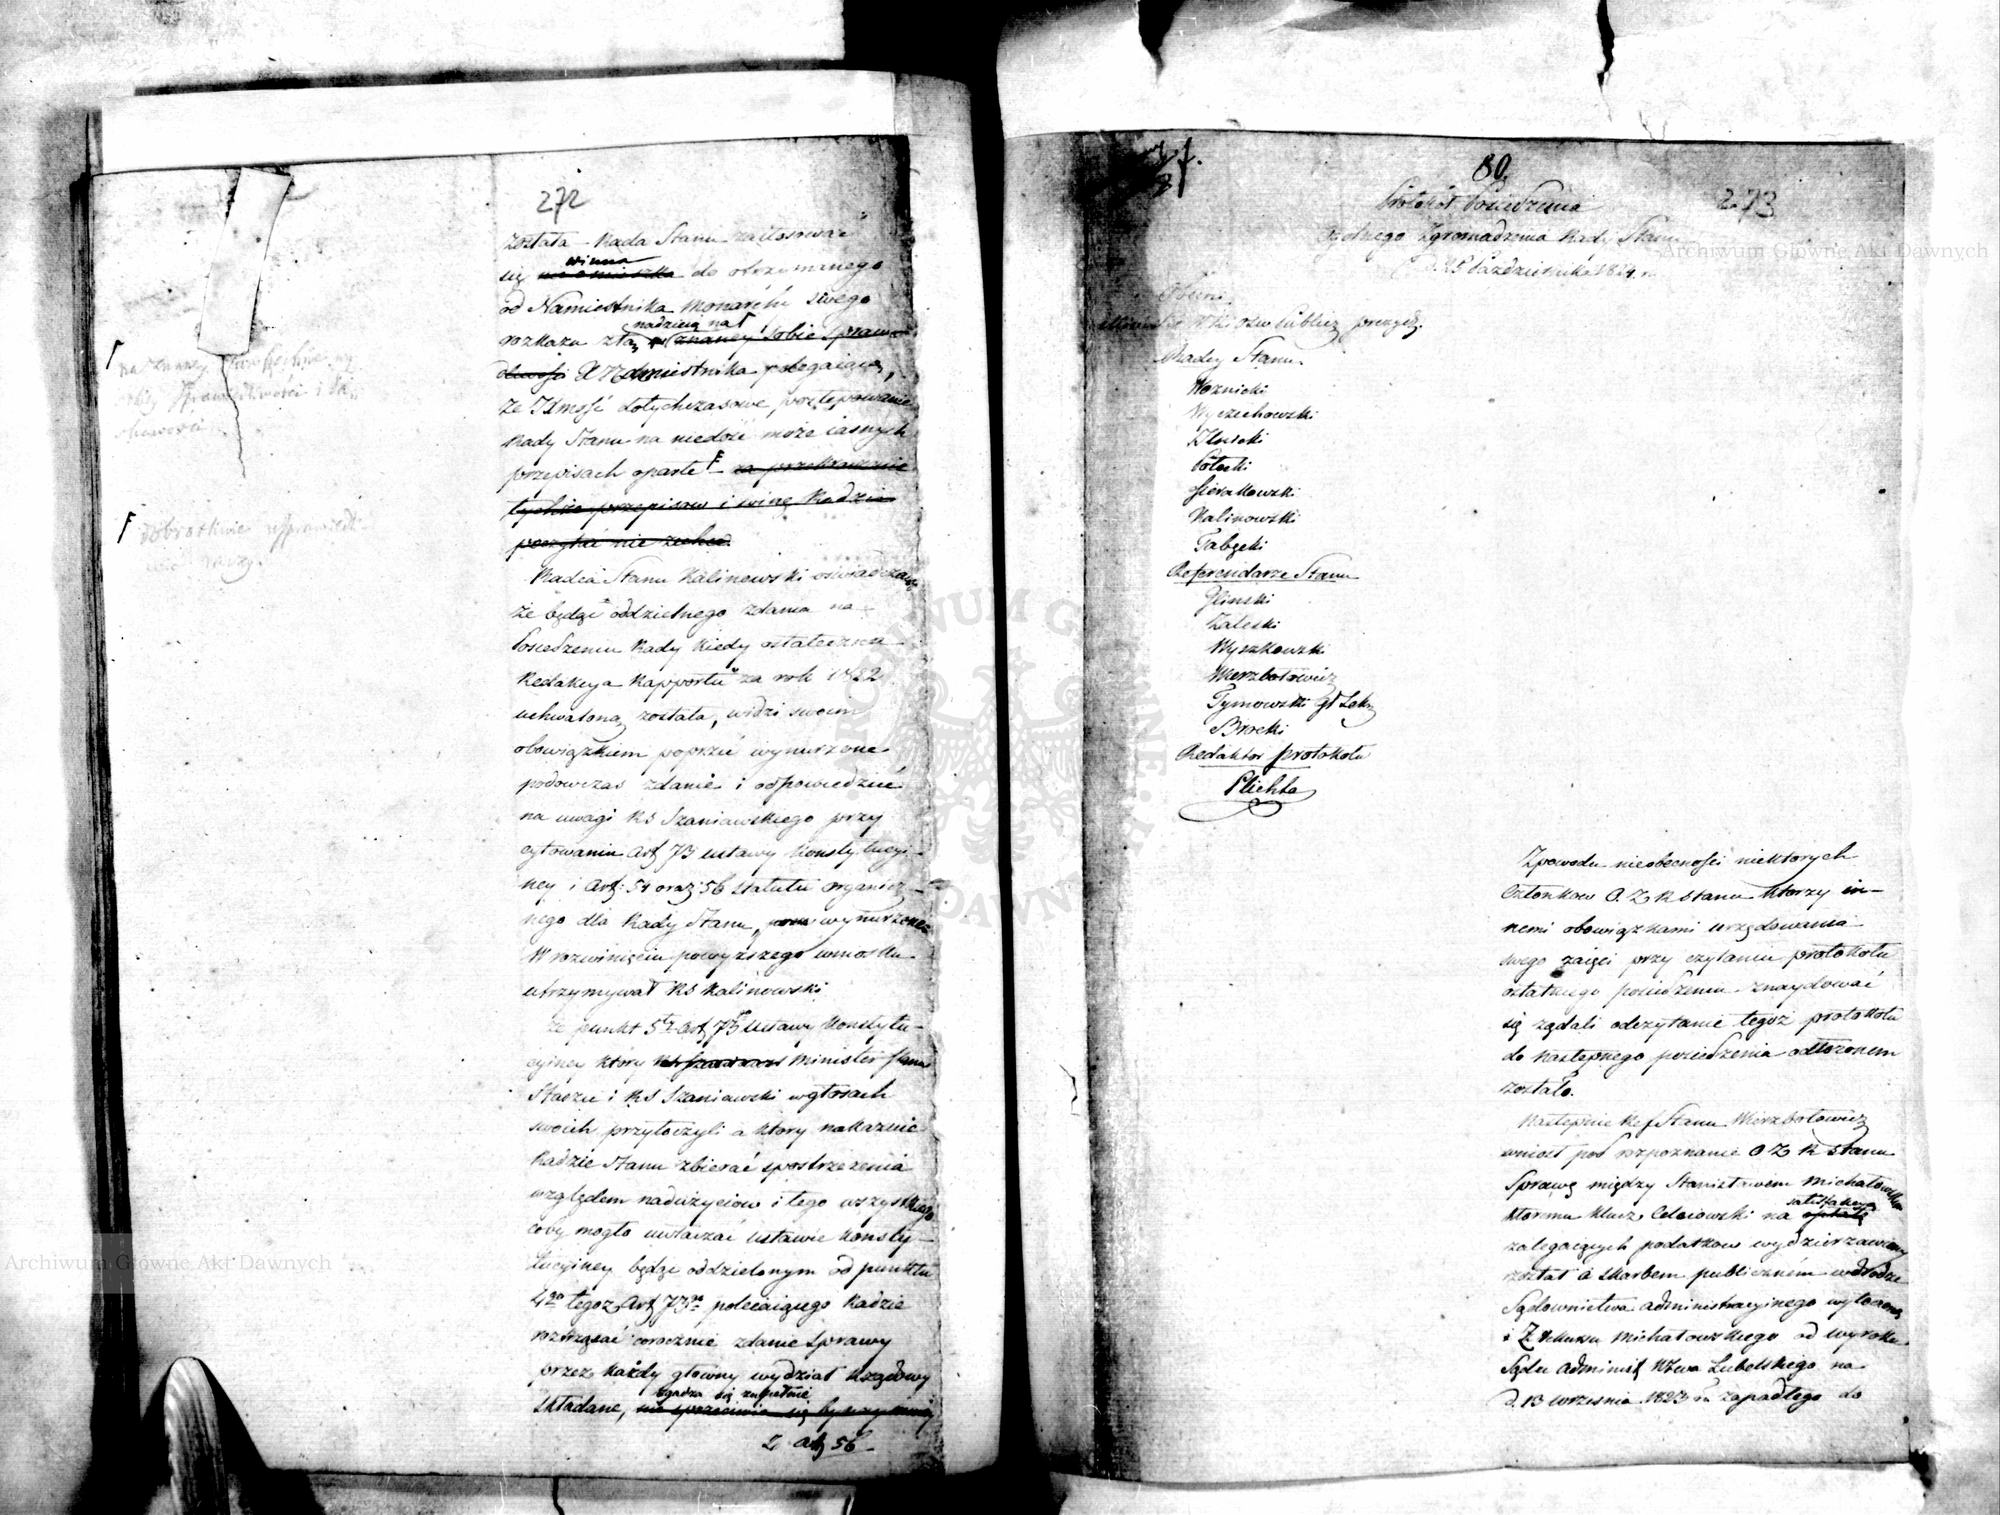 272
została – Rada Stanu zastosować
winna
się do otrzymanego
od Namiestnika Monarchi swego
rozkazu z tą nadzieią na
znaney sobie sprawie-
dliwości X Namiestnika polegaiącą,
że Jmość dotychczasowe postępowanie
Rady Stanu na niedość może iasnych
przepisach oparte – za przekroczenie
tychże przepisow i winę Radzie
poczytać nie zechce.
Radca Stanu Kalinowski oświadczaiąc
że będąc oddzielnego zdania na
Posiedzeniu Rady kiedy ostateczna
Redakcya Rapportu za rok 1822
uchwaloną została, widzi swoim
obowiązkiem poprzeć wynurzone
podowczas zdanie i odpowiedzieć
na uwagi RS Szaniawskiego przy
cytowaniu Art 73 ustawy Konstytucyi-
ney i Art: 54 oraz 56 statutu organicz-
nego dla Rady Stanu, wynurzone
W rozwinięciu powyższego wniosku
utrzymywał RS Kalinowski
że punkt 5ty Art 73go Ustawy Konstytu-
cyiney który Minister Stanu
Staszic i RS Szaniawski w głosach
swoich przytoczyli a który nakazuie
Radzie Stanu zbierać spostrzeżenia
względem nadużyciow i tego wszystkiego
coby mogło uwłaczać ustawie Konsty-
tucyiney będąc oddzielonym od punktu
4go tegoż Art 73go polecaiącego Radzie
roztrząsać corocznie zdanie sprawy
przez każdy główny wydział Rządowy
zgadza się zupełnie
składane, nie sprzeciwia się bynaymniey
z Art 56
na znaney
sprawiedliwości i
dobrotliwie usprawiedli-
wić raczy.
80.
273
Protokół Posiedzenia
Ogólnego Zgromadzenia Rady Stanu
d. 25 Października 1824 r.
Obecni
publicz prezyd.
Radcy Stanu.
Woznicki
Wyczechowski
Potocki
Sierakowski
Kalinowski
Tabęcki
Referendarze Stanu
Glinski
Zaleski
Wyszkowski
Wierzbołowicz
Tymowski
Brocki
Redaktor protokołu
Plichta
Zpowodu nieobecności niektorych
Członkow O. Z R stanu ktorzy in-
nemi obowiązkami urzędowania
swego zaięci przy czytaniu protokołu
ostatniego posiedzenia znaydować
się żądali odczytanie tegoż protokołu
do następnego posiedzenia odłożonem
zostało.
Następnie Ref Stanu Wierzbołowicz
wniosł pod rozpoznanie O Z R Stanu
Sprawę między Stanisławem Michałowskim
satisfakcyą
ktoremu Klucz Celeiowski na opłatę
zalegaiących podatkow wydzierzawiony
został a skarbem publicznem w drodze
Sądownictwa administracyinego wytoczoną
i Z rekursu Michałowskiego od wyroku
Sądu Administ Wtwa Lubelskiego na
d. 13 września 1823 r. zapadłego do
Archiwum Główne Akt Dawnych
Archiwum Główne Akt Dawnych